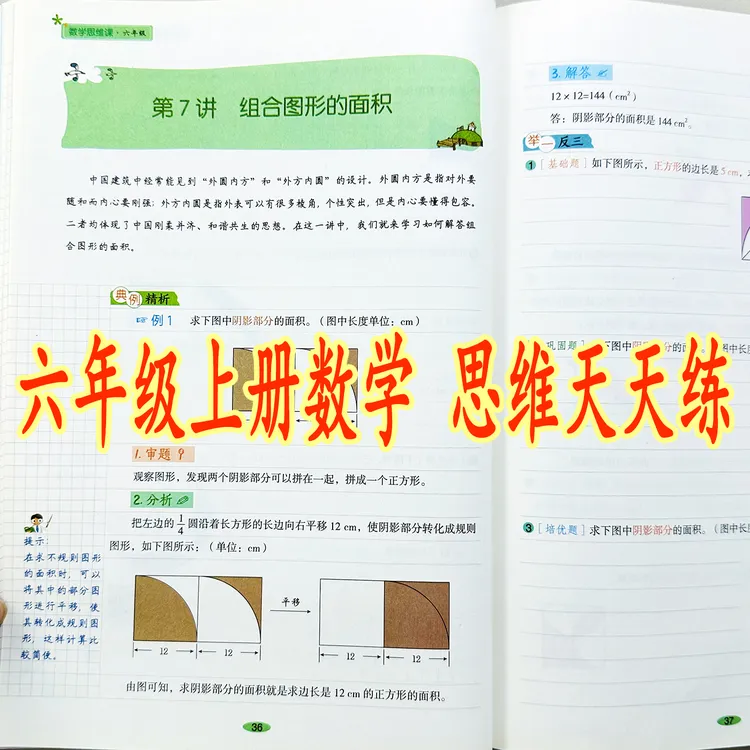 数学思维课·六年级
第7讲 组合图形的面积
中国建筑中经常能见到“外圆内方”和“外方内圆”的设计。外圆内方是指对外要
随和而内心要刚强;外方内圆是指外表可以有很多棱角,个性突出,但是内心要懂得包容。
二者均体现了中国刚柔并济、和谐共生的思想。在这一讲中,我们就来学习如何解答组
合图形的面积。
典例精析
例1 求下图中阴影部分的面积。(图中长度单位:cm)
六年级上册数学 思维天天练
1.审题
观察图形,发现两个阴影部分可以拼在一起,拼成一个正方形。
2.分析
把左边的1/4圆沿着长方形的长边向右平移12 cm,使阴影部分转化成规则
图形,如下图所示:(单位:cm)
平移
12 12 12 12
由图可知,求阴影部分的面积就是求边长是12 cm的正方形的面积。
提示:
在求不规则图形
的面积时,可以
将其中的部分图
形进行平移,使
其转化成规则图
形,这样计算比
较简便。
36
3.解答
12×12=144(cm²)
答:阴影部分的面积是144 cm²。
举一反三
1 [基础题] 如下图所示,正方形的边长是5 cm,
巩固题] 下图中阴影部分的面积。(图中长
3 [培优题] 求下图中阴影部分的面积。(图中长度
37